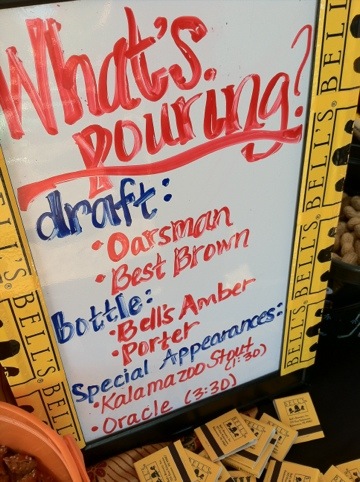 What's
pouring?
draft:
• Oarsman
• Best Brown
Bottle:
• Bell's Amber
• Porter
Special Appearances:
• Kalamazoo Stout (1:30)
• Oracle (3:30)
BELL'S
BELL'S
BELL'S
BELL'S
BELL'S
BELL'S
BELL'S